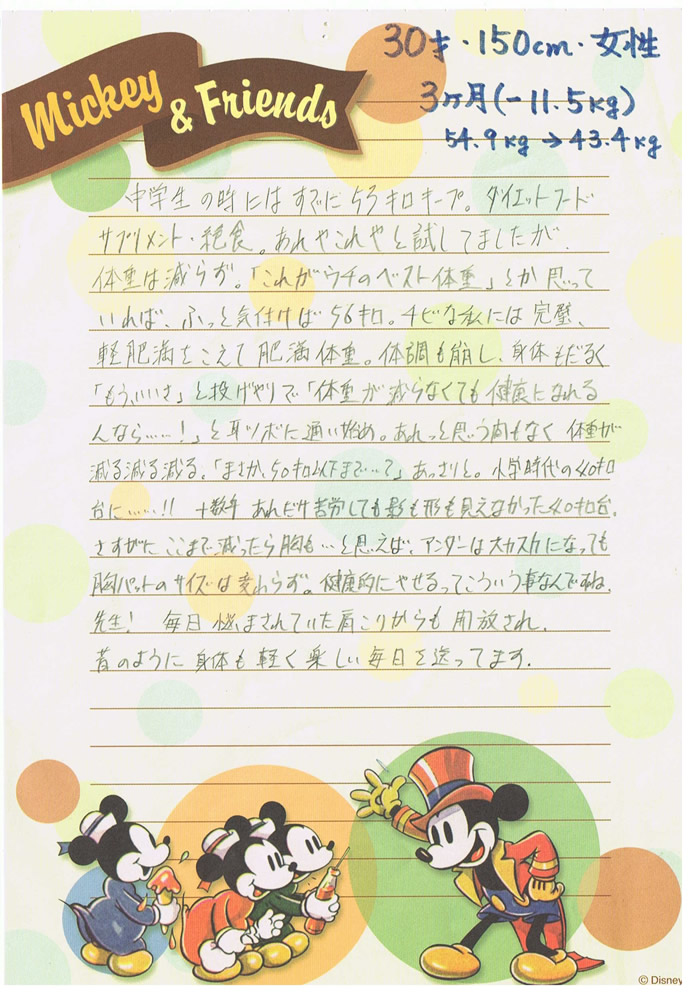 Mickey & Friends
30才・150cm・女性
3ヶ月(-11.5kg)
54.9kg→43.4kg
中学生の時にはすでに53キロキープ。ダイエットフード
サプリメント・絶食。あれやこれやと試してましたが、
体重は減らず。「これがウチのベスト体重」とか思って
いれば、ふっと気付けば56キロ。チビな私には完璧、
軽肥満をこえて肥満体重。体調も崩し、身体もだるく
「もういいさ」と投げやりで「体重が減らなくても健康になれる
んなら……!」と耳ツボに通い始め。あれっと思う間もなく体重が
減る減る減る。「まさか、50キロ以下まで…って」あっさりと。小学時代の40キロ
台に……!! 十数年あれだけ苦労しても影も形も見えなかった40キロ台。
さすがにここまで減ったら胸も…と思えば、アンダーは大カスカになっても
胸パットのサイズは変わらず。健康的にやせるってこういう事なんですね、
先生! 毎日悩まされていた肩こりからも開放され、
昔のように身体も軽く楽しい毎日を送ってます。
© Disney